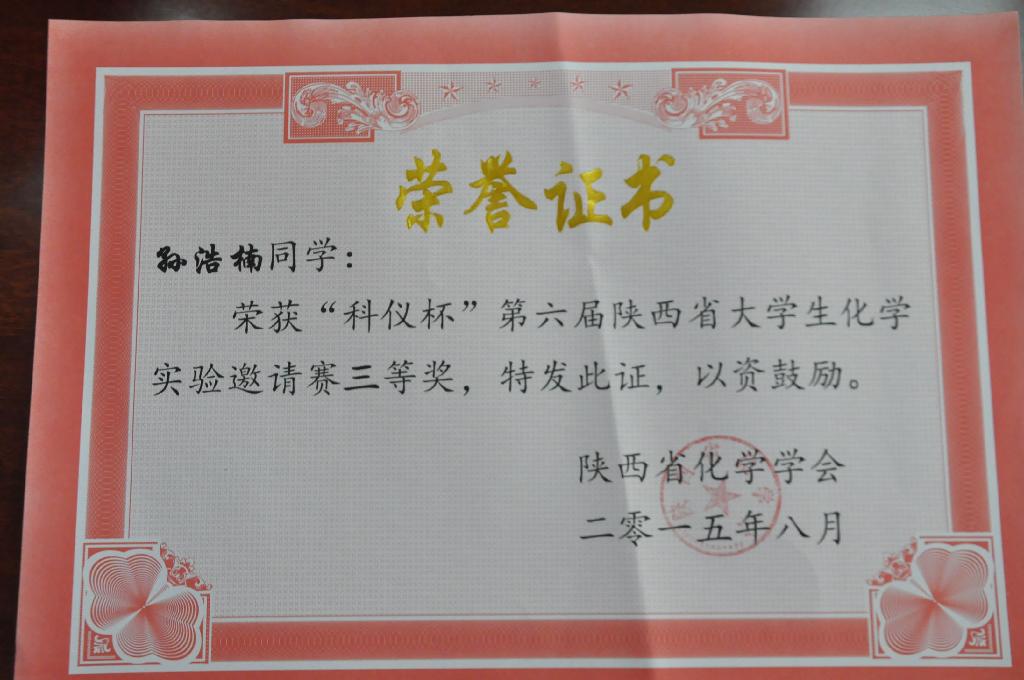 荣誉证书
孙浩楠同学：
荣获“科仪杯”第六届陕西省大学生化学
实验邀请赛三等奖，特发此证，以资鼓励。
陕西省化学学会
二零一五年八月